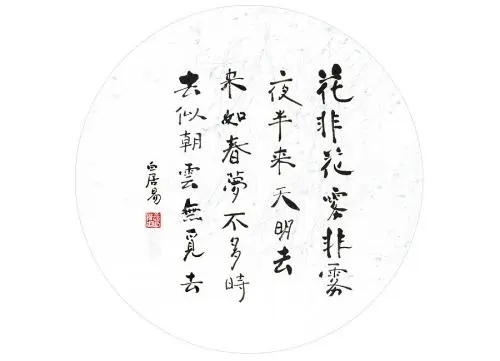 花非花霧非霧
夜半来天明去
来如春夢不多時
去似朝雲無覓去
白居易